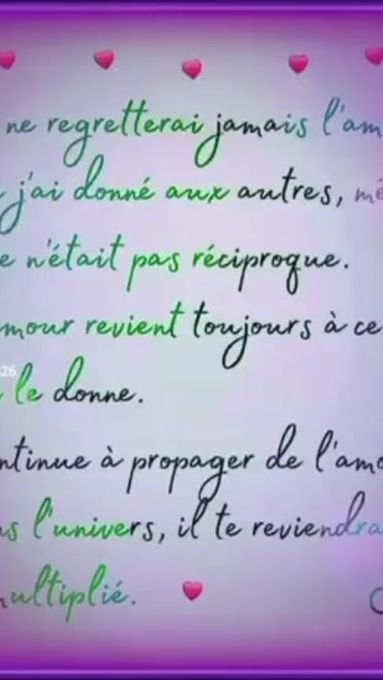 ne regretterai jamais l'am
j'ai donné aux autres, mê
e n'était pas réciproque.
mour revient toujours à ce
26
le donne.
ntinue à propager de l'amo
s l'univers, il te reviendra
ultiplié.